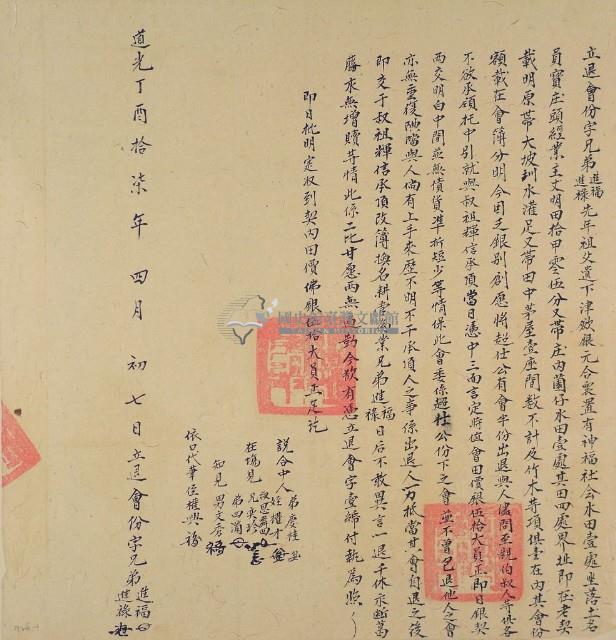 立退會份字兄弟進福進祿先年祖父遺下津欽銀元合置有神福社会水田壹處坐落土名
員寶庄頭經業主丈明田拾甲零伍分又帶庄內菌仔水田壹處其田四處界址即在老契
載明原帶大坡圳水灌足又帶田中茅屋壹座間数不計及竹木等項俱壹在內其會份
額載在會簿分明今因乏銀别創愿將超仕公有會半份出退與人儘問至親伯叔人等俱各
不欲承領托中引就與叔祖輝信承頂當日憑中三面言定時值會田價銀伍拾大員正即日銀契
两交明白中間並無債貨準折短少等情保此會委係超仕公份下之會並不曾包退他人之會
亦無重復典掛與人倘有上手來歷不明不干承頂人之事係出退人一力抵當其會自退之後
即交于叔祖輝信承頂改簿換名耕管為業兄弟進福祿日後不敢異言一退千休永断葛
藤永無增贖等情此係二比甘愿两無逼勒今欲有憑立退會字壹紙付執為照
即日批明寔收到契內田價佛銀伍拾大員正足訖
說合中人
在塲見
知見 男文秀
依口代筆侄權興
道光丁酉拾柒年四月初七日立退會份字兄弟進福進祿
國史館臺灣文獻館